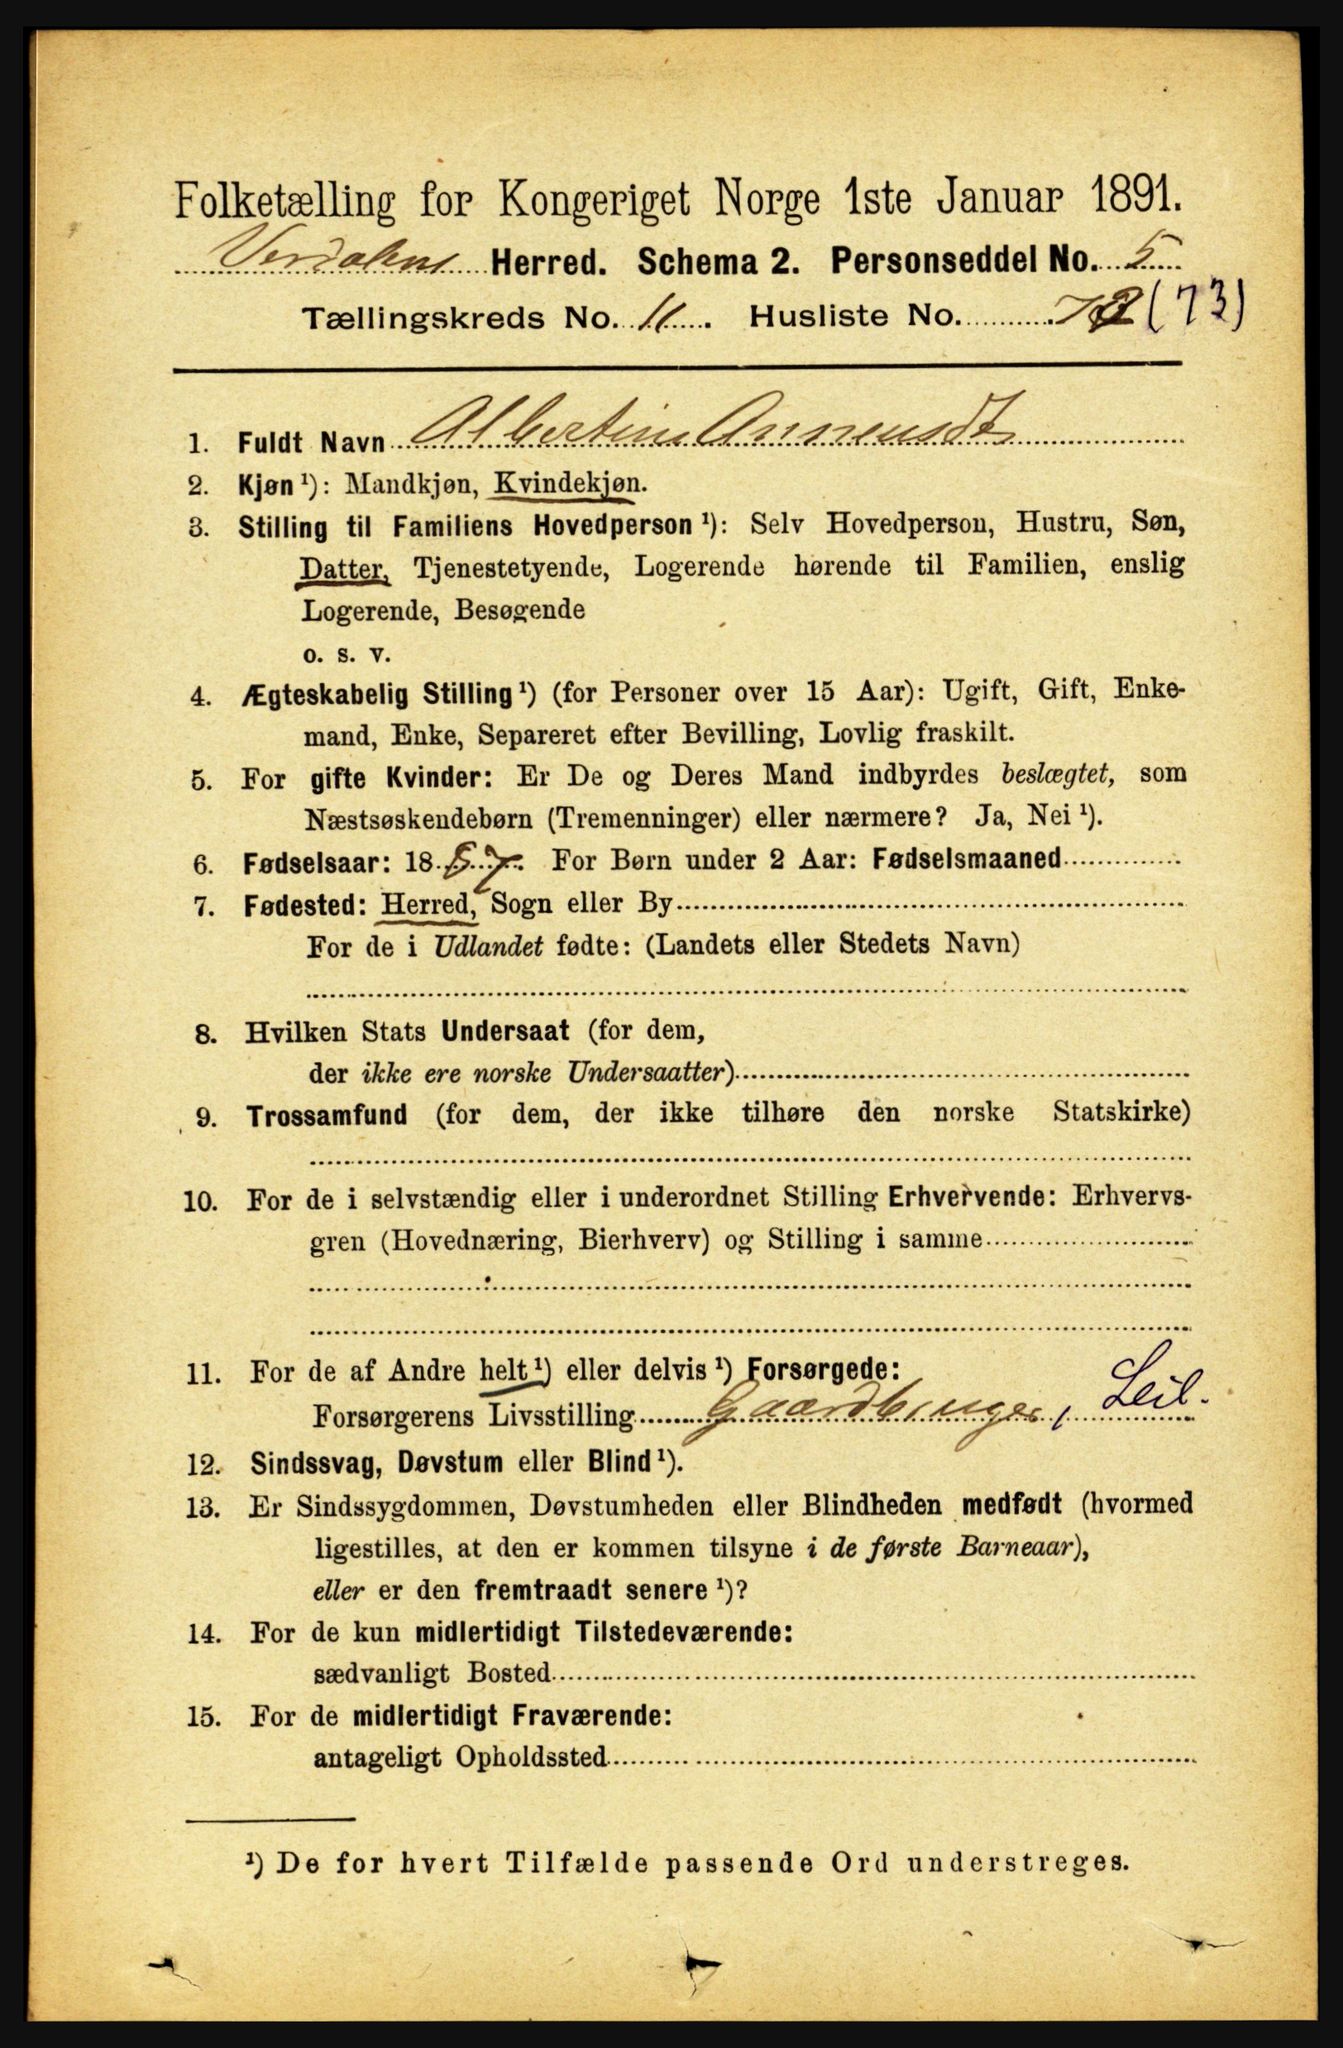 Folketælling for Kongeriget Norge 1ste Januar 1891.
Verdalens Herred. Schema 2. Personseddel No. 5
Tællingskreds No. 11. Husliste No. (73)
1. Fuldt Navn Albertine Annensdt
2. Kjøn ¹): Mandkjøn, Kvindekjøn.
3. Stilling til Familiens Hovedperson ¹): Selv Hovedperson, Hustru, Søn,
Datter, Tjenestetyende, Logerende hørende til Familien, enslig
Logerende, Besøgende
o. s. v.
4. Ægteskabelig Stilling ¹) (for Personer over 15 Aar): Ugift, Gift, Enke-
mand, Enke, Separeret efter Bevilling, Lovlig fraskilt.
5. For gifte Kvinder: Er De og Deres Mand indbyrdes beslægtet, som
Næstsøskendebørn (Tremenninger) eller nærmere? Ja, Nei ¹).
6. Fødselsaar: 18 For Børn under 2 Aar: Fødselsmaaned
7. Fødested: Herred, Sogn eller By
For de i Udlandet fødte: (Landets eller Stedets Navn)
8. Hvilken Stats Undersaat (for dem,
der ikke ere norske Undersaatter)
9. Trossamfund (for dem, der ikke tilhøre den norske Statskirke)
10. For de i selvstændig eller i underordnet Stilling Erhvervende: Erhvervs-
gren (Hovednæring, Bierhverv) og Stilling i samme
11. For de af Andre helt ¹) eller delvis ¹) Forsørgede:
Forsørgerens Livsstilling Gaardbruger, Leil.
12. Sindssvag, Døvstum eller Blind ¹).
13. Er Sindssygdommen, Døvstumheden eller Blindheden medfødt (hvormed
ligestilles, at den er kommen tilsyne i de første Barneaar),
eller er den fremtraadt senere ¹)?
14. For de kun midlertidigt Tilstedeværende:
sædvanligt Bosted
15. For de midlertidigt Fraværende:
antageligt Opholdssted
¹) De for hvert Tilfælde passende Ord understreges.